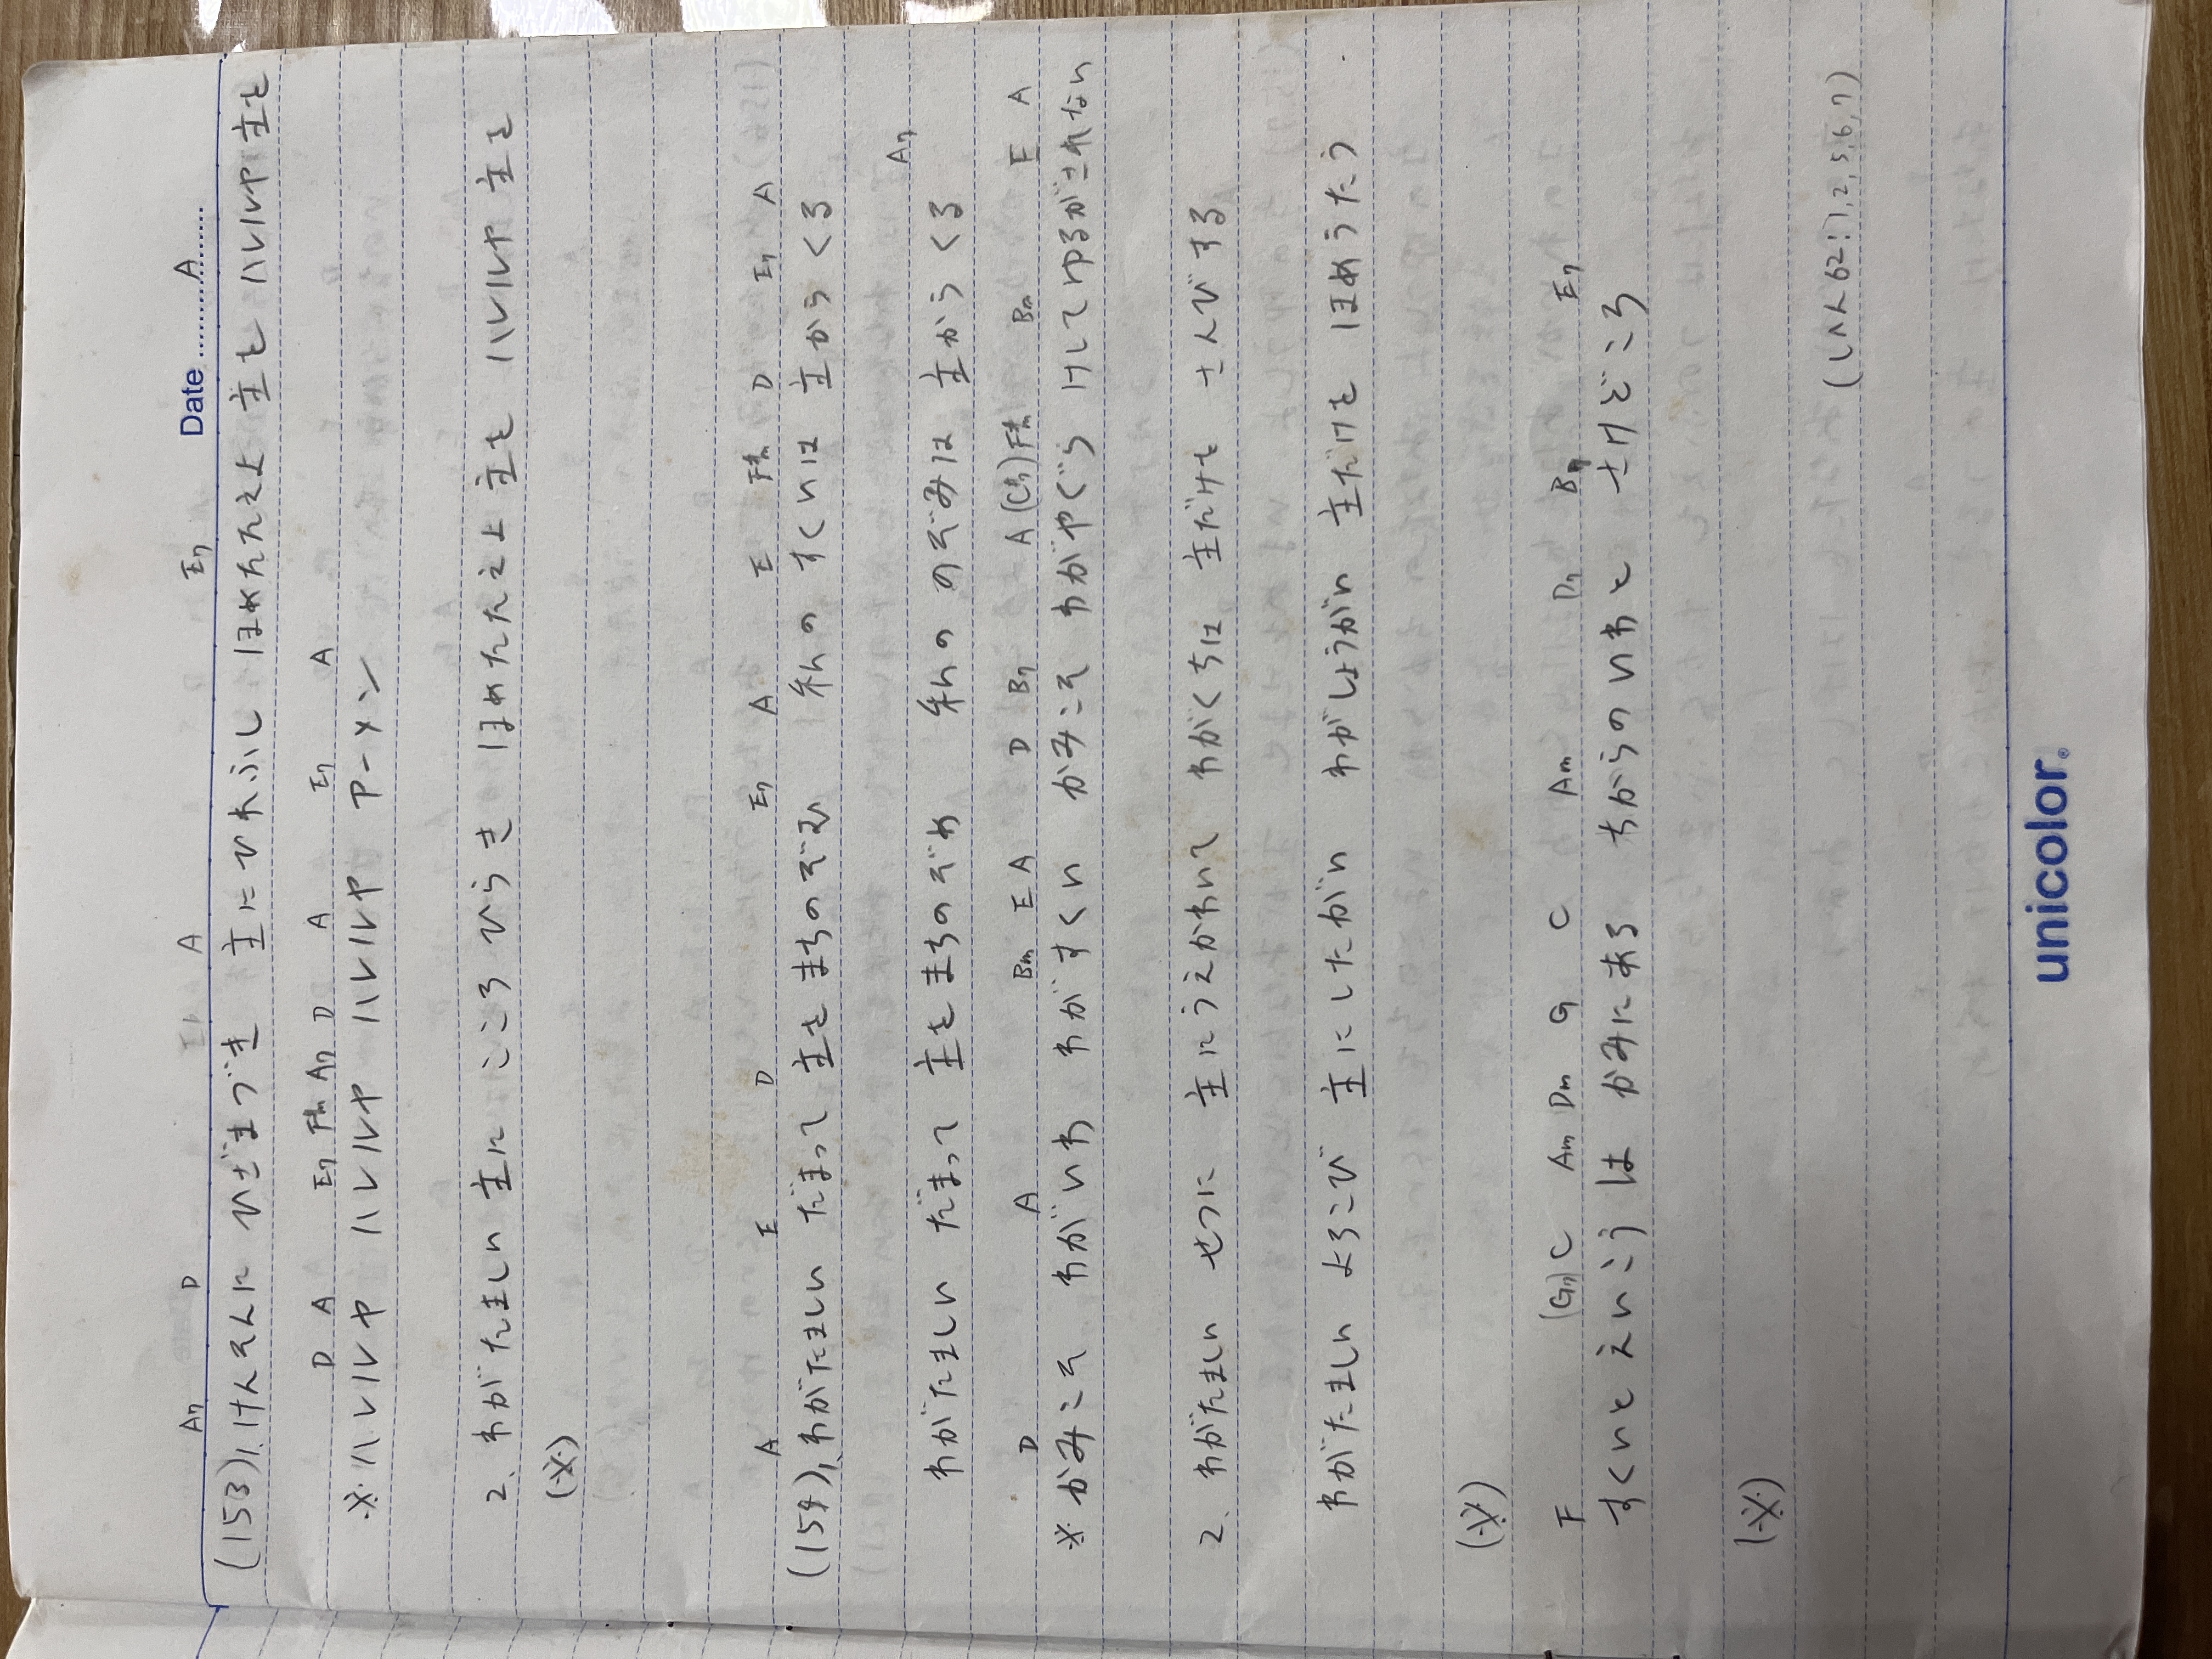 Date ..................
A7 D A E7 A
(153) 1. けんそんに ひざまづき 主にひれふし ほめたたえよ 主を ハレルヤ 主を
D A E7 F#m A7 D A E7 A
※ハレルヤ ハレルヤ ハレルヤ アーメン
2. わがたましい 主に こころ ひらき ほめたたえよ 主を ハレルヤ 主を
(※)
A E D E7 A E F#m D E7 A
(154) 1. わがたましい だまって 主をまちのぞむ 私の すくいは 主から くる
A7
わがたましい だまって 主をまちのぞめ 私の のぞみは 主から くる
D A Bm E A D B7 A (C#7) F#m Bm E A
※かみこそ わがいわ わがすくい かみこそ わがやぐら けしてゆるがされない
2. わがたましい せつに 主にうえかわいて わがくちは 主だけを さんびする
わがたましい よろこび 主にしたがい わがしょうがい 主だけを ほめうたう
(※)
F (G7) C Am Dm G C Am D7 B7 E7
すくいと えいこうは かみにある ちからのいわと さけどころ
(※)
(しへん 62:1,2,5,6,7)
unicolor®